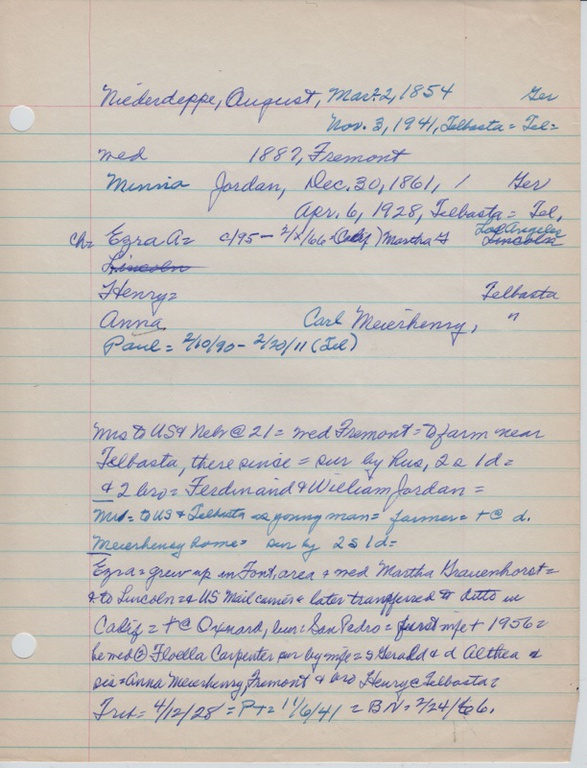 Niederdeppe, August, Mar. 2, 1854 Ger
Nov. 3, 1941, Telbasta = Tel=
wed 1887, Fremont
Minnia Jordan, Dec. 30, 1861, / Ger
Apr. 6, 1928, Telbasta = Tel,
ch= Ezra A= c/95 - 2/2/66 (Calif) Martha G Los Angeles Lincoln
Lincoln
Henry= Telbasta
Anna Carl Meierhenry, "
Paul = 2/10/90 - 2/20/11 (Tel)
Mrs to US & Nebr @ 21 = wed Fremont = to farm near
Telbasta, there since = sur by hus, 2 s 1 d =
& 2 bro = Ferdinand & William Jordan =
Mr = to US & Telbasta as young man = farmer = + @ d.
Meierhenry home = sur by 2 s 1 d =
Ezra = grew up in Font. area & wed Martha Grauenhorst =
& to Lincoln = & US Mail carrier & later transferred to ditto in
Calif = + @ Oxnard, bur = San Pedro = first wife + 1956 =
he wed @ Floella Carpenter sur by wife = s Gerald & d Althea &
sis = Anna Meierhenry, Fremont & bro Henry @ Telbasta =
Trib = 4/12/28 = PT = 11/6/41 = BN = 2/24/66.